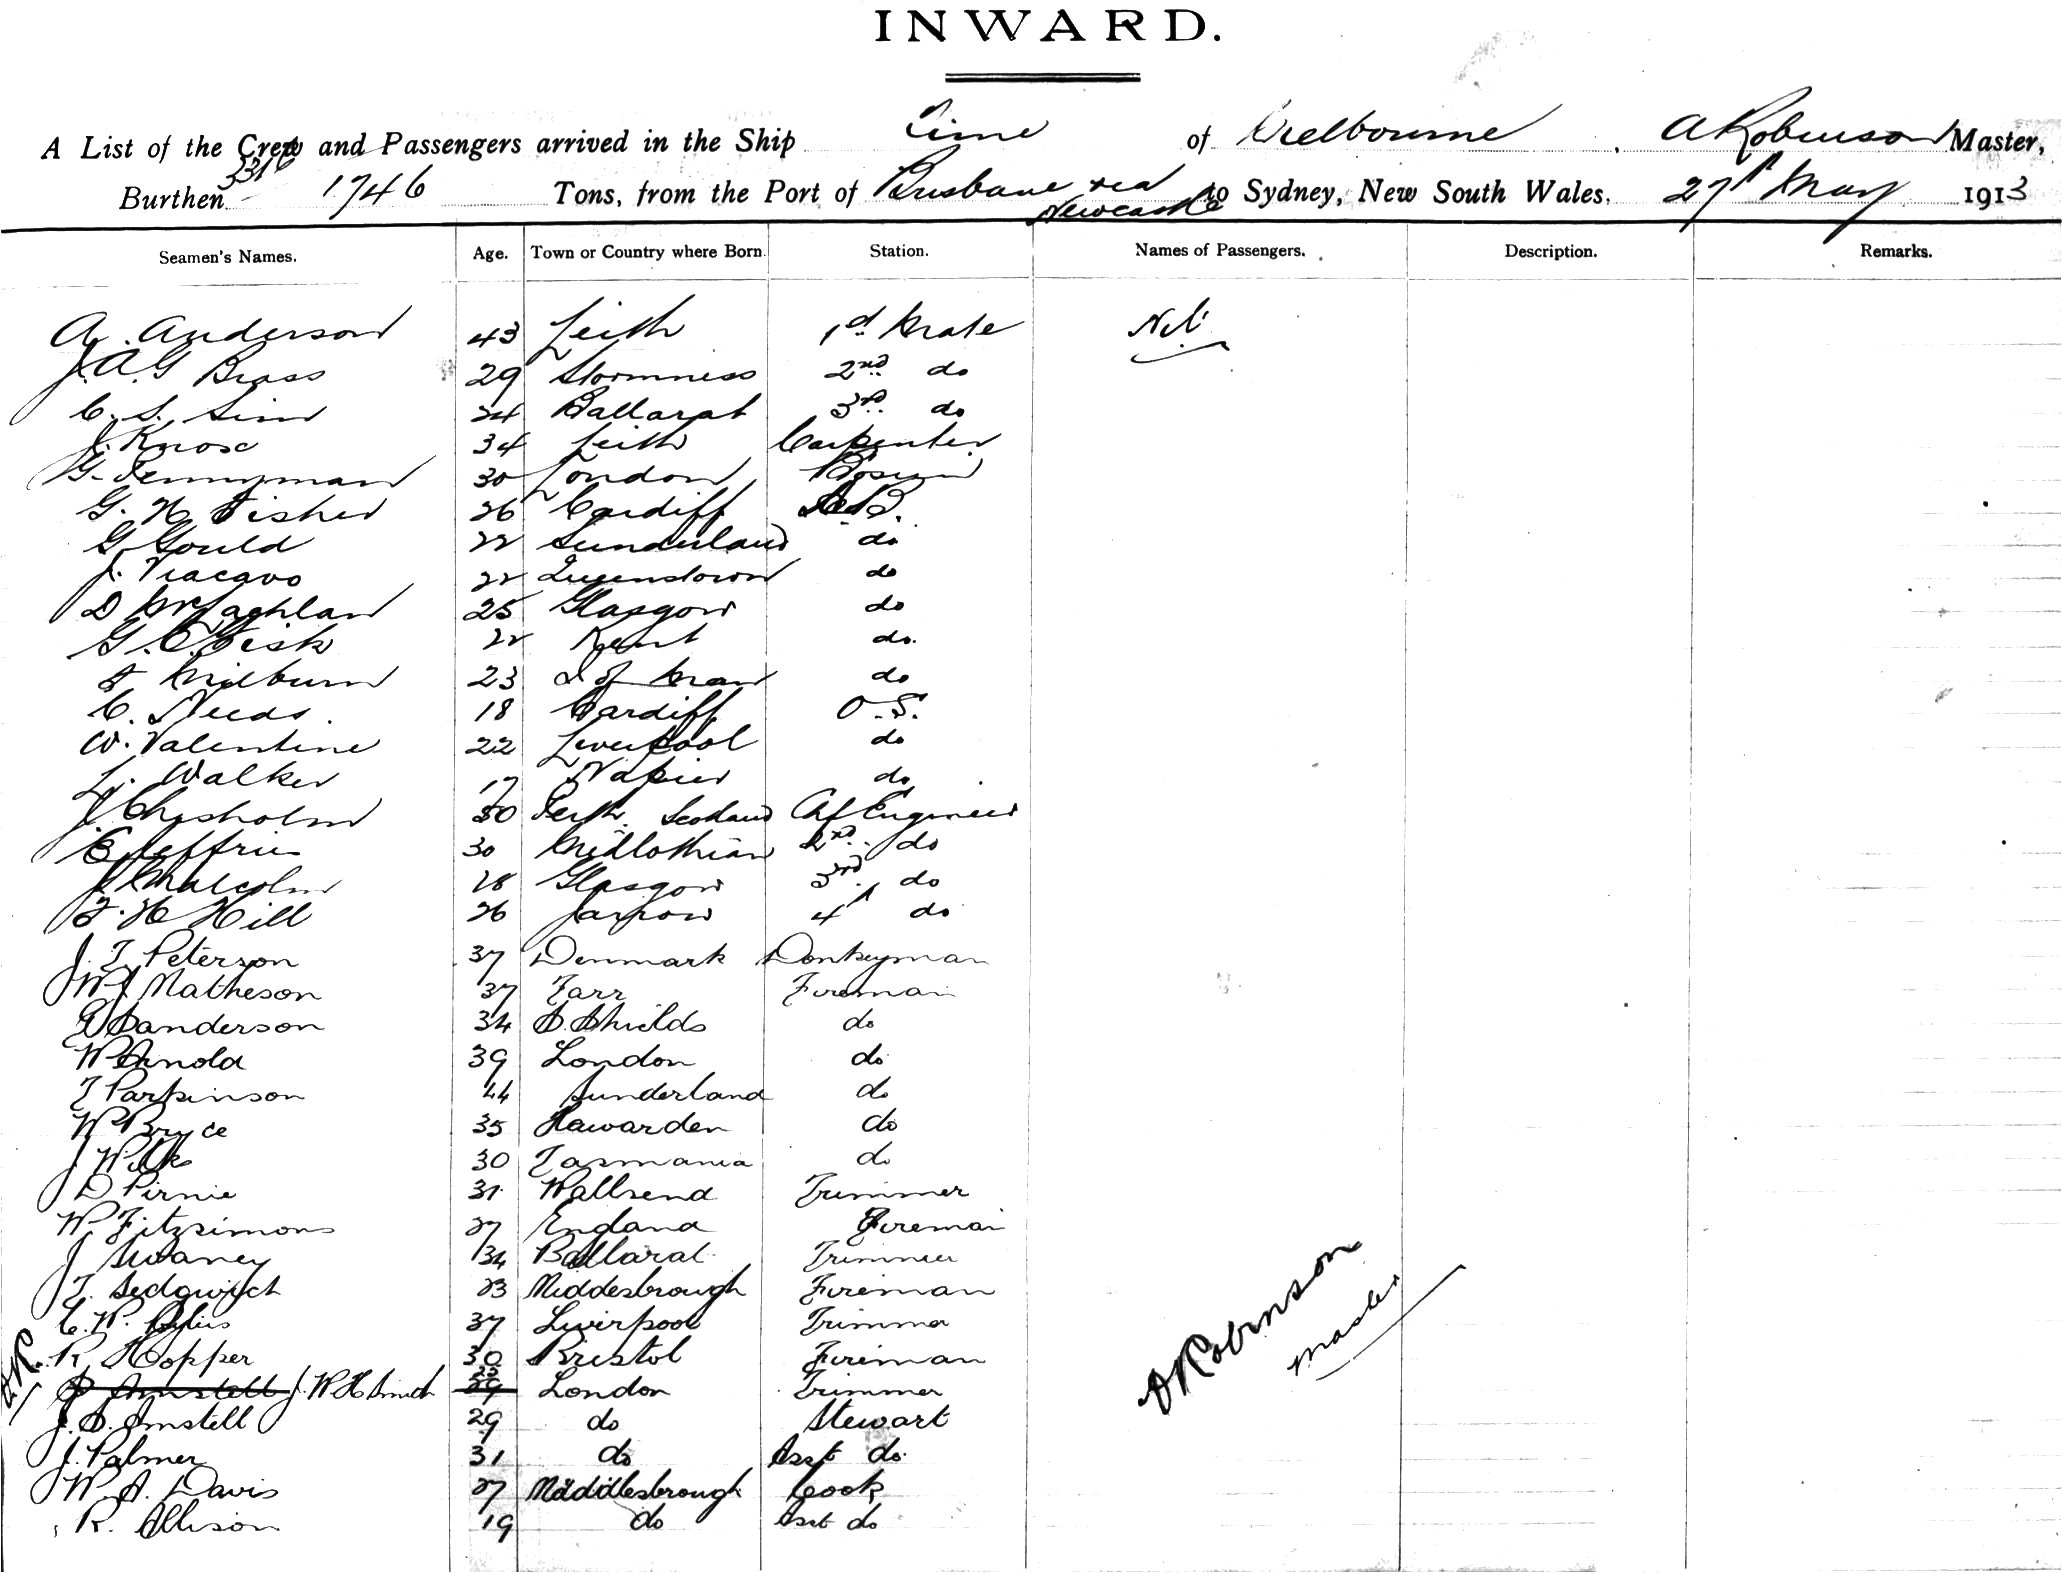 INWARD.
A List of the Crew and Passengers arrived in the Ship Time of Melbourne, A Robinson Master,
Burthen 3316 1746 Tons, from the Port of Brisbane via Newcastle to Sydney, New South Wales, 27th May 1913
Seamen's Names. Age. Town or Country where Born. Station. Names of Passengers. Description. Remarks.
A. Anderson 43 Leith 1st Mate Nil
J. A. G Brass 29 Stormness 2nd do
C. S. Sim 24 Ballarat 3rd do
J. Knox 34 Leith Carpenter
G. Pennyman 30 London Bosun
G. H Fisher 26 Cardiff A.B.
G Gould 22 Sunderland do
J. Viacavo 22 Queenstown do
D McLaghlan 25 Glasgow do
G. C. Fisk 22 Kent do.
F Milburn 23 I of Man do
C. Needs. 18 Cardiff O.S.
W. Valentine 22 Liverpool do
L. Walker 17 Napier do
J. Chisholm 50 Perth. Scotland Chf Engineer
E Jeffries 30 Midlothian 2nd do
J Malcolm 28 Glasgow 3rd do
F. H Hill 26 Jarrow 4th do
J. T Peterson 37 Denmark Donkeyman
W J Matheson 37 Tarr Fireman
G Sanderson 34 S. Shields do
W Arnold 39 London do
T Parkinson 44 Sunderland do
W Bryce 35 Hawarden do
J Wilks 30 Tasmania do
D Pirnie 31 Wallsend Trimmer
W Fitzsimons 27 England Fireman
J Swaney 34 Ballarat Trimmer
T. Sedgwick 23 Middesbrough Fireman
C. W. 37 Liverpool Trimmer
R Hopper 30 Bristol Fireman
A.R. J Amstell J. W H Smith 29 23 London Trimmer
J. S. Amstell 29 do Stewart
J. Palmer 31 do Asst do.
W. A. Davis 27 Middlesbrough Cook
R. Allison 19 do Asst do
A Robinson
Master